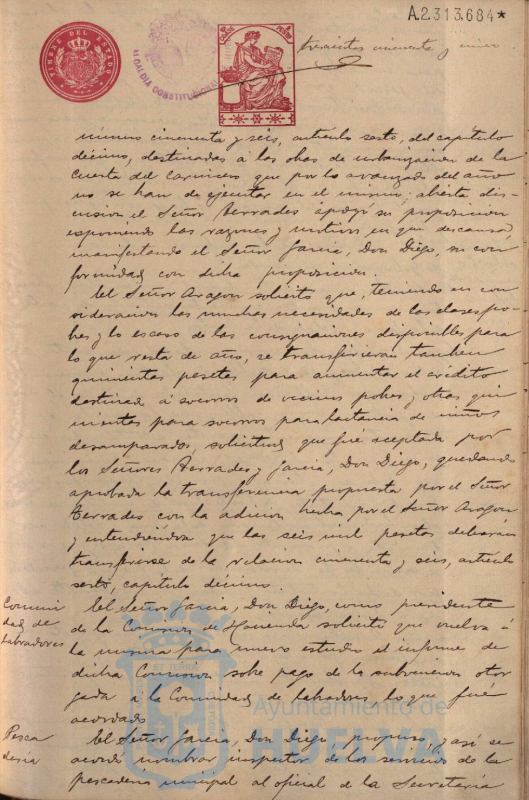 A.2.313.684*
TIMBRE DEL ESTADO
ALCALDIA CONSTITUCIONAL
trescientos cincuenta y cinco
número cincuenta y seis, artículo sexto, del capítulo
décimo, destinadas á las obras de urbanización de la
Cuesta del Carnicero que por lo avanzado del año
no se han de ejecutar en el mismo; abierta dis-
cusion el Señor Terrades apoyó su proposicion
exponiendo las razones y motivos en que descansa,
manifestando el Señor Garcia, Don Diego, su con
formidad con dicha proposicion.
El Señor Aragon solicitó que, teniendo en con
sideracion las muchas necesidades de las clases po-
bres y lo escaso de las consignaciones disponibles para
lo que resta de año, se transfirieran tambien
quinientas pesetas para aumentar el crédito
destinado á socorros de vecinos pobres y otras qui
nientas para socorros para lactancia de niños
desamparados, solicitud que fué aceptada por
los Señores Terrades y Garcia, Don Diego, quedando
aprobada la transferencia propuesta por el Señor
Terrades con la adicion hecha por el Señor Aragón
y entendiéndose que las seis mil pesetas deberán
transferirse de la relacion cincuenta y seis, artículo
sexto, capítulo décimo.
Comuni
dad de
Labradores
El Señor Garcia, Don Diego, como presidente
de la Comision de Hacienda solicitó que vuelva á
la misma para nuevo estudio el informe de
dicha Comision sobre pago de la subvencion otor
gada á la Comunidad de Labradores, lo que fué
acordado.
Pesca
deria
El Señor Garcia, Don Diego, propuso, y así se
acordó nombrar inspector de los servicios de la
pescaderia municipal al oficial de la Secretaría
Ayuntamiento de
HUELVA